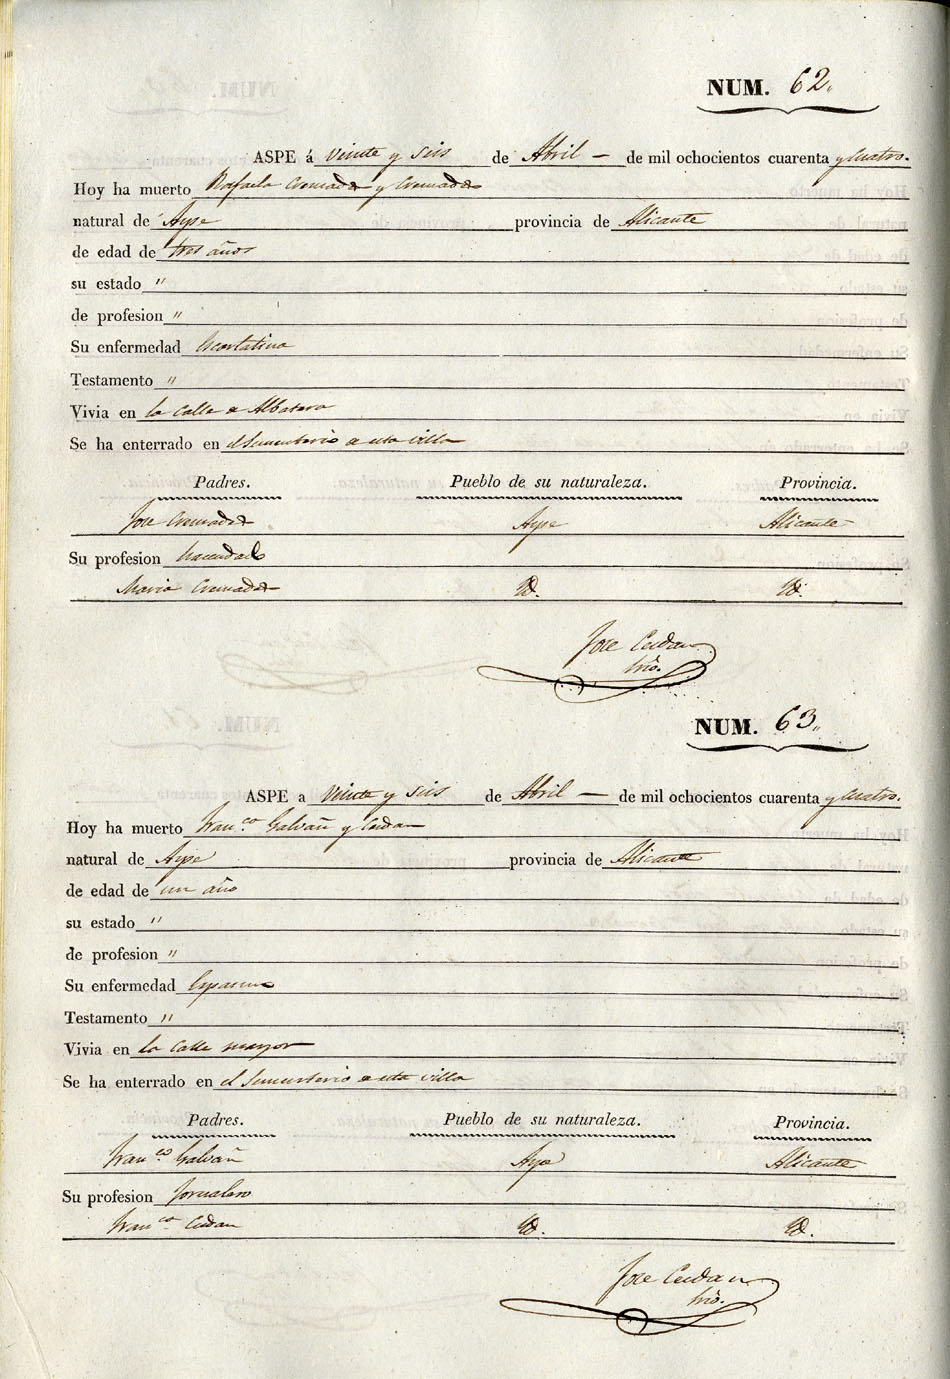 NUM. 62.
ASPE á Veinte y seis de Abril de mil ochocientos cuarenta y cuatro.
Hoy ha muerto Rafaela Cremades y Cremades
natural de Aspe provincia de Alicante
de edad de tres años
su estado "
de profesion "
Su enfermedad Escarlatina
Testamento "
Vivia en la Calle a Albatera
Se ha enterrado en el Sementerio a esta villa
Padres. Pueblo de su naturaleza. Provincia.
Jose Cremades Aspe Alicante
Su profesion hacendado
Maria Cremades Id. Id.
Jose
NUM. 63.
ASPE a Veinte y seis de Abril de mil ochocientos cuarenta y cuatro.
Hoy ha muerto Franco. Galvañ y
natural de Aspe provincia de Alicante
de edad de un año
su estado "
de profesion "
Su enfermedad
Testamento "
Vivia en la Calle mayor
Se ha enterrado en el Sementerio a esta villa
Padres. Pueblo de su naturaleza. Provincia.
Franco. Galvañ Aspe Alicante
Su profesion Jornalero
Franca. Id. Id.
Jose